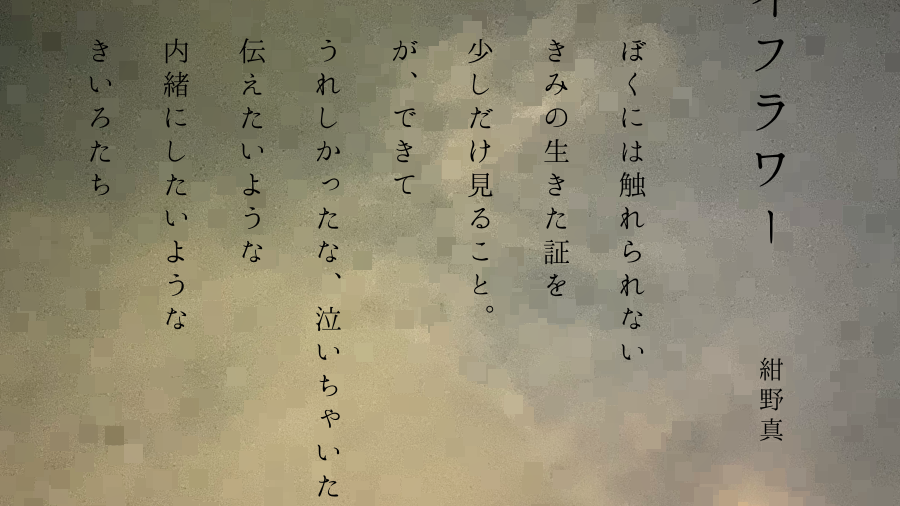 イフラワー
紺野真
ぼくには触れられない
きみの生きた証を
少しだけ見ること。
が、できて
うれしかったな、泣いちゃいた
伝えたいような
内緒にしたいような
きいろたち